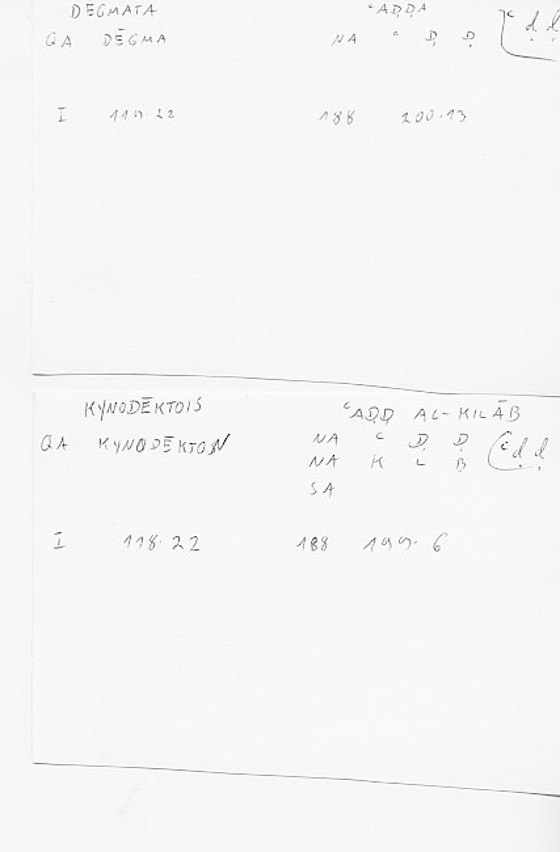 DĒGMATA ʿAḌḌA
QA DĒGMA NA ʿ Ḍ Ḍ [ʿ ḍ ḍ
I 119.22 188 200.13
KYNODĒKTOIS ʿAḌḌ AL-KILĀB
QA KYNODĒKTON NA ʿ Ḍ Ḍ (ʿ ḍ ḍ
NA K L B
SA
I 118.22 188 199.6